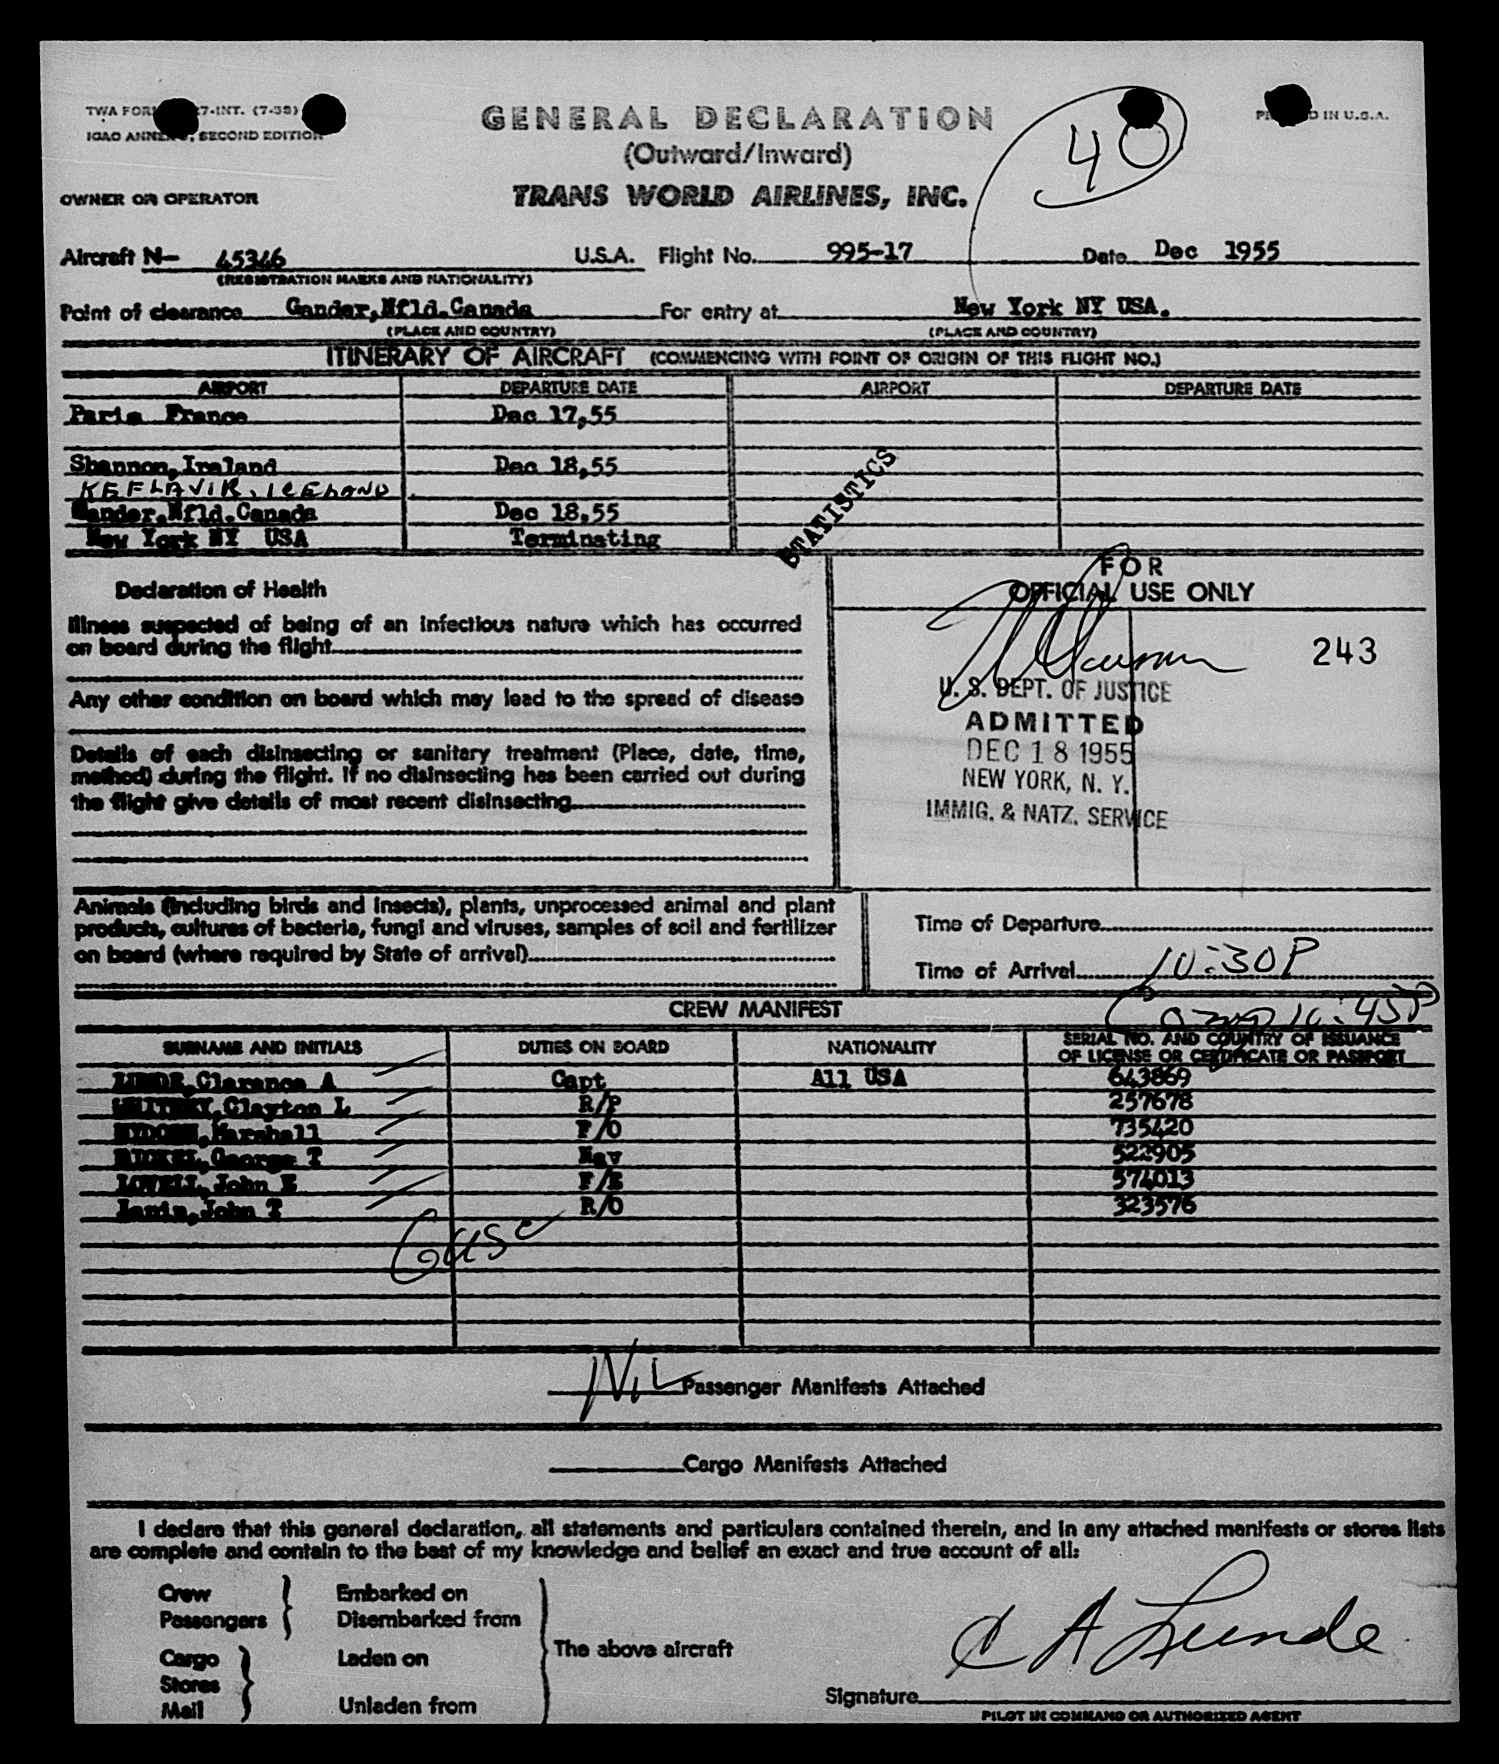 TWA FORM 7-INT. (7-55)
ICAO ANNEX 9, SECOND EDITION
GENERAL DECLARATION
(Outward/Inward)
TRANS WORLD AIRLINES, INC.
40
IN U.S.A.
OWNER OR OPERATOR
Aircraft N- 45346 U.S.A. Flight No. 995-17 Date Dec 1955
(REGISTRATION MARKS AND NATIONALITY)
Point of clearance Gander, Nfld. Canada For entry at New York NY USA.
(PLACE AND COUNTRY) (PLACE AND COUNTRY)
ITINERARY OF AIRCRAFT (COMMENCING WITH POINT OF ORIGIN OF THIS FLIGHT NO.)
AIRPORT DEPARTURE DATE AIRPORT DEPARTURE DATE
Paris France Dec 17,55
Shannon, Ireland Dec 18,55
KEFLAVIK, ICELAND
Gander, Nfld. Canada Dec 18,55
New York NY USA Terminating
STATISTICS
Declaration of Health
Illness suspected of being of an infectious nature which has occurred
on board during the flight
Any other condition on board which may lead to the spread of disease
Details of each disinsecting or sanitary treatment (Place, date, time,
method) during the flight. If no disinsecting has been carried out during
the flight give details of most recent disinsecting
FOR
OFFICIAL USE ONLY
243
U. S. DEPT. OF JUSTICE
ADMITTED
DEC 18 1955
NEW YORK, N. Y.
IMMIG. & NATZ. SERVICE
Animals (including birds and insects), plants, unprocessed animal and plant
products, cultures of bacteria, fungi and viruses, samples of soil and fertilizer
on board (where required by State of arrival)
Time of Departure
Time of Arrival 10:30P
10:45P
CREW MANIFEST
SURNAME AND INITIALS DUTIES ON BOARD NATIONALITY SERIAL NO. AND COUNTRY OF ISSUANCE
OF LICENSE OR CERTIFICATE OR PASSPORT
LUNDE, Clarence A Capt All USA 643869
WHITNEY, Clayton L R/P 257678
Marshall F/O 735420
George T Nav 522905
LOVELL, John E F/E 574013
John T R/O 323576
Nil Passenger Manifests Attached
Cargo Manifests Attached
I declare that this general declaration, all statements and particulars contained therein, and in any attached manifests or stores lists
are complete and contain to the best of my knowledge and belief an exact and true account of all:
Crew Embarked on
Passengers Disembarked from
Cargo Laden on The above aircraft
Stores
Mail Unladen from
C A Lunde
Signature
PILOT IN COMMAND OR AUTHORIZED AGENT